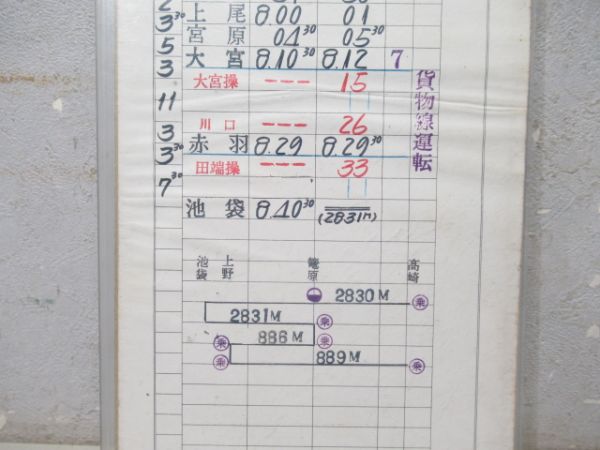 3 30 上尾 8.00 01
宮原 04 05 30
5 大宮 8.10 30 8.12 7
3 大宮操 --- 15
11 貨物線運転
川口 --- 26
3 赤羽 8.29 8.29 30
3 30 田端操 --- 33
7 30 池袋 8.40 30 (2831M)
池袋 上野 籠原 高崎
2830M 乗
2831M 乗
乗 886M 乗
乗 889M 乗